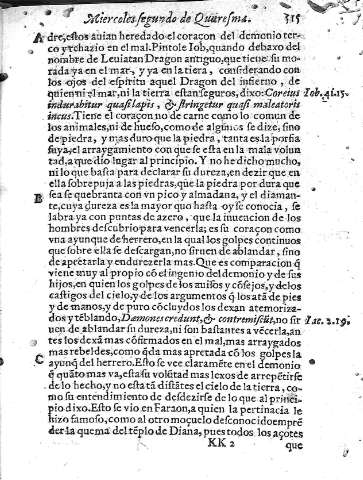 Miercoles segundo de Quaresma. 315
A dre, estos auian heredado el coraçon del demonio ter-
co y rehazio en el mal. Pintole Iob, quando debaxo del
nombre de Leuiatan Dragon antiguo, que tiene su mo-
rada ya en el mar, y ya en la tiera, considerando con
los ojos del espiritu aquel Dragon del infierno, de
quien ni el mar, ni la tierra estan seguros, dixo: Cor eius Iob. 41. 15.
indurabitur quasi lapis, & stringetur quasi maleatoris
incus. Tiene el coraçon no de carne como lo comun de
los animales, ni de hueso, como de algunos se dize, sino
de piedra, y mas duro que la piedra, tanta es la porfia
suya, el arraygamiento con que se està en la mala volun
tad, a que dio lugar al principio. Y no he dicho mucho,
ni lo que basta para declarar su dureza, en dezir que en
ella sobrepuja a las piedras, que la piedra por dura que
B sea se quebranta con vn pico y almadana, y el diaman-
te, cuya dureza es la mayor que hasta oy se conocia, se
labra ya con puntas de azero, que la inuencion de los
hombres descubrio para vencerla; es su coraçon como
vna ayunque de herrero, en la qual los golpes continuos
que sobre ella se descargan, no siruen de ablandar, sino
de apetarla y endurezerla mas. Que es comparacion q̃
viene muy al propio cõ el ingenio del demonio y de sus
hijos, en quien los golpes de los auisos y cõsejos, y de los
castigos del cielo, y de los argumentos q̃ los atã de pies
y de manos, y de puro cõcluydos los dexan atemoriza-
dos y tẽblando, Dæmones credunt, & contremiscũt, no sir Iac. 2. 19.
uen de ablandar su dureza, ni son bastantes a vẽcerla, an
tes los dexã mas cõfirmados en el mal, mas arraygados
mas rebeldes, como q̃da mas apretada cõ los golpes la
C ayunq̃ del herrero. Esto se vee claramẽte en el demonio
q̃ quãto mas va, esta su volũtad mas lexos de arrepẽtirse
de lo hecho, y no està tã distãtes el cielo de la tierra, co-
mo su entendimiento de desdezirse de lo que al princi-
pio dixo. Esto se vio en Faraon, a quien la pertinacia le
hizo famoso, como al otro moçuelo desconocido emprẽ
der la quema del tẽplo de Diana, pues todos los açotes
KK 2 que